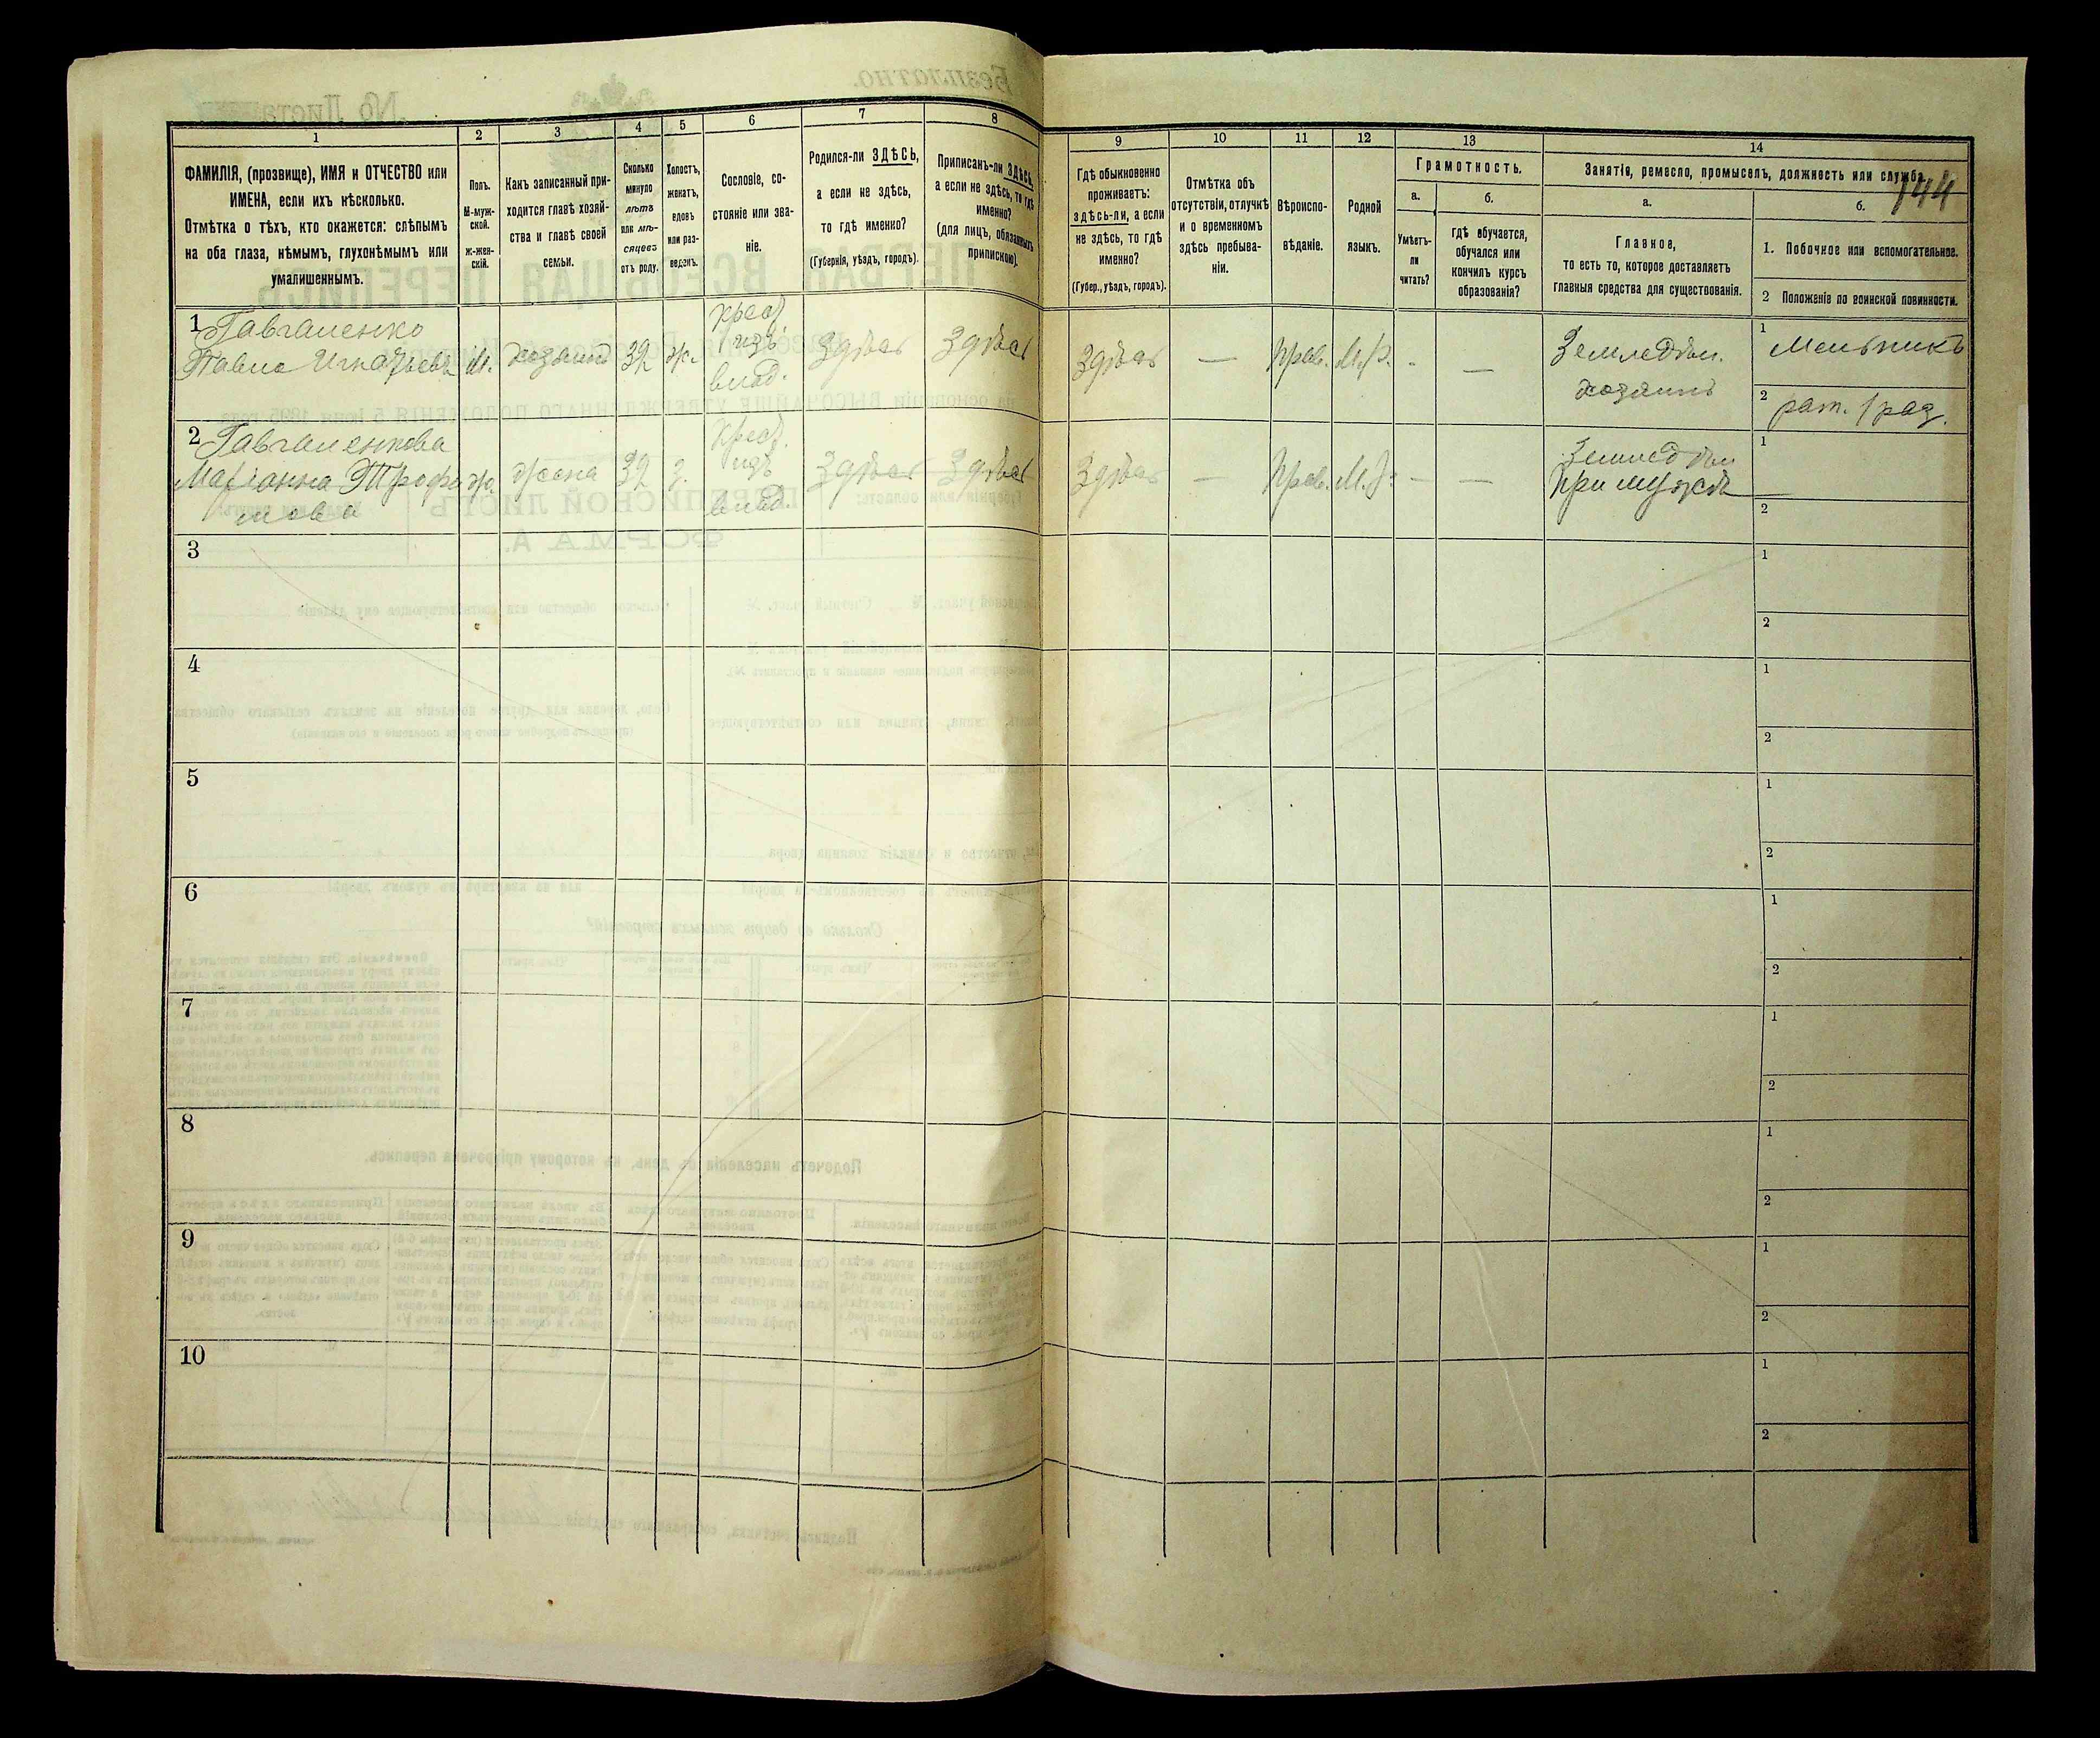 144
1
2
3
4
5
6
7
8
9
10
11
12
13
14
ФАМИЛІЯ, (прозвище), ИМЯ и ОТЧЕСТВО или
ИМЕНА, если ихъ нѣсколько.
Отмѣтка о тѣхъ, кто окажется: слѣпымъ
на оба глаза, нѣмымъ, глухонѣмымъ или
умалишеннымъ.
Полъ.
М-муж-
ской.
ж-жен-
скій.
Какъ записанный при-
ходится главѣ хозяй-
ства и главѣ своей
семьи.
Сколько
минуло
лѣтъ
или мѣ-
сяцевъ
отъ роду.
Холостъ,
женатъ,
вдовъ
или раз-
веденъ.
Сословіе, со-
стояніе или зва-
ніе.
Родился-ли ЗДѢСЬ,
а если не здѣсь,
то гдѣ именно?
(Губернія, уѣздъ, городъ).
Приписанъ-ли ЗДѢСЬ,
а если не здѣсь, то гдѣ
именно?
(для лицъ, обязанныхъ
припискою).
Гдѣ обыкновенно
проживаетъ:
здѣсь-ли, а если
не здѣсь, то гдѣ
именно?
(Губер., уѣздъ, городъ).
Отмѣтка объ
отсутствіи, отлучкѣ
и о временномъ
здѣсь пребыва-
ніи.
Вѣроиспо-
вѣданіе.
Родной
языкъ.
Грамотность.
а.
Умѣетъ-
ли
читать?
б.
гдѣ обучается,
обучался или
кончилъ курсъ
образованія?
Занятіе, ремесло, промыселъ, должность или служба.
а.
Главное,
то есть то, которое доставляетъ
главныя средства для существованія.
б.
1. Побочное или вспомогательное.
2 Положеніе по воинской повинности.
1 Гавчаленко
Павло Игнатьевъ
М.
хозяинъ
32
ж.
крест.
изъ
влад.
Здѣсь
Здѣсь
Здѣсь
—
Прав.
М.Р.
-
—
Земледѣл.
хозяинъ
1 Мельникъ
2 рат. 1 раз.
2 Гавчаленкова
Маріанна Трофи
мова
ж.
жена
32
з.
Крест.
изъ
влад.
Здѣсь
Здѣсь
Здѣсь
—
Прав.
М.Р.
—
—
Земледѣл
При мужѣ
1
—
2
3
1
2
4
1
2
5
1
2
6
1
2
7
1
2
8
1
2
9
1
2
10
1
2